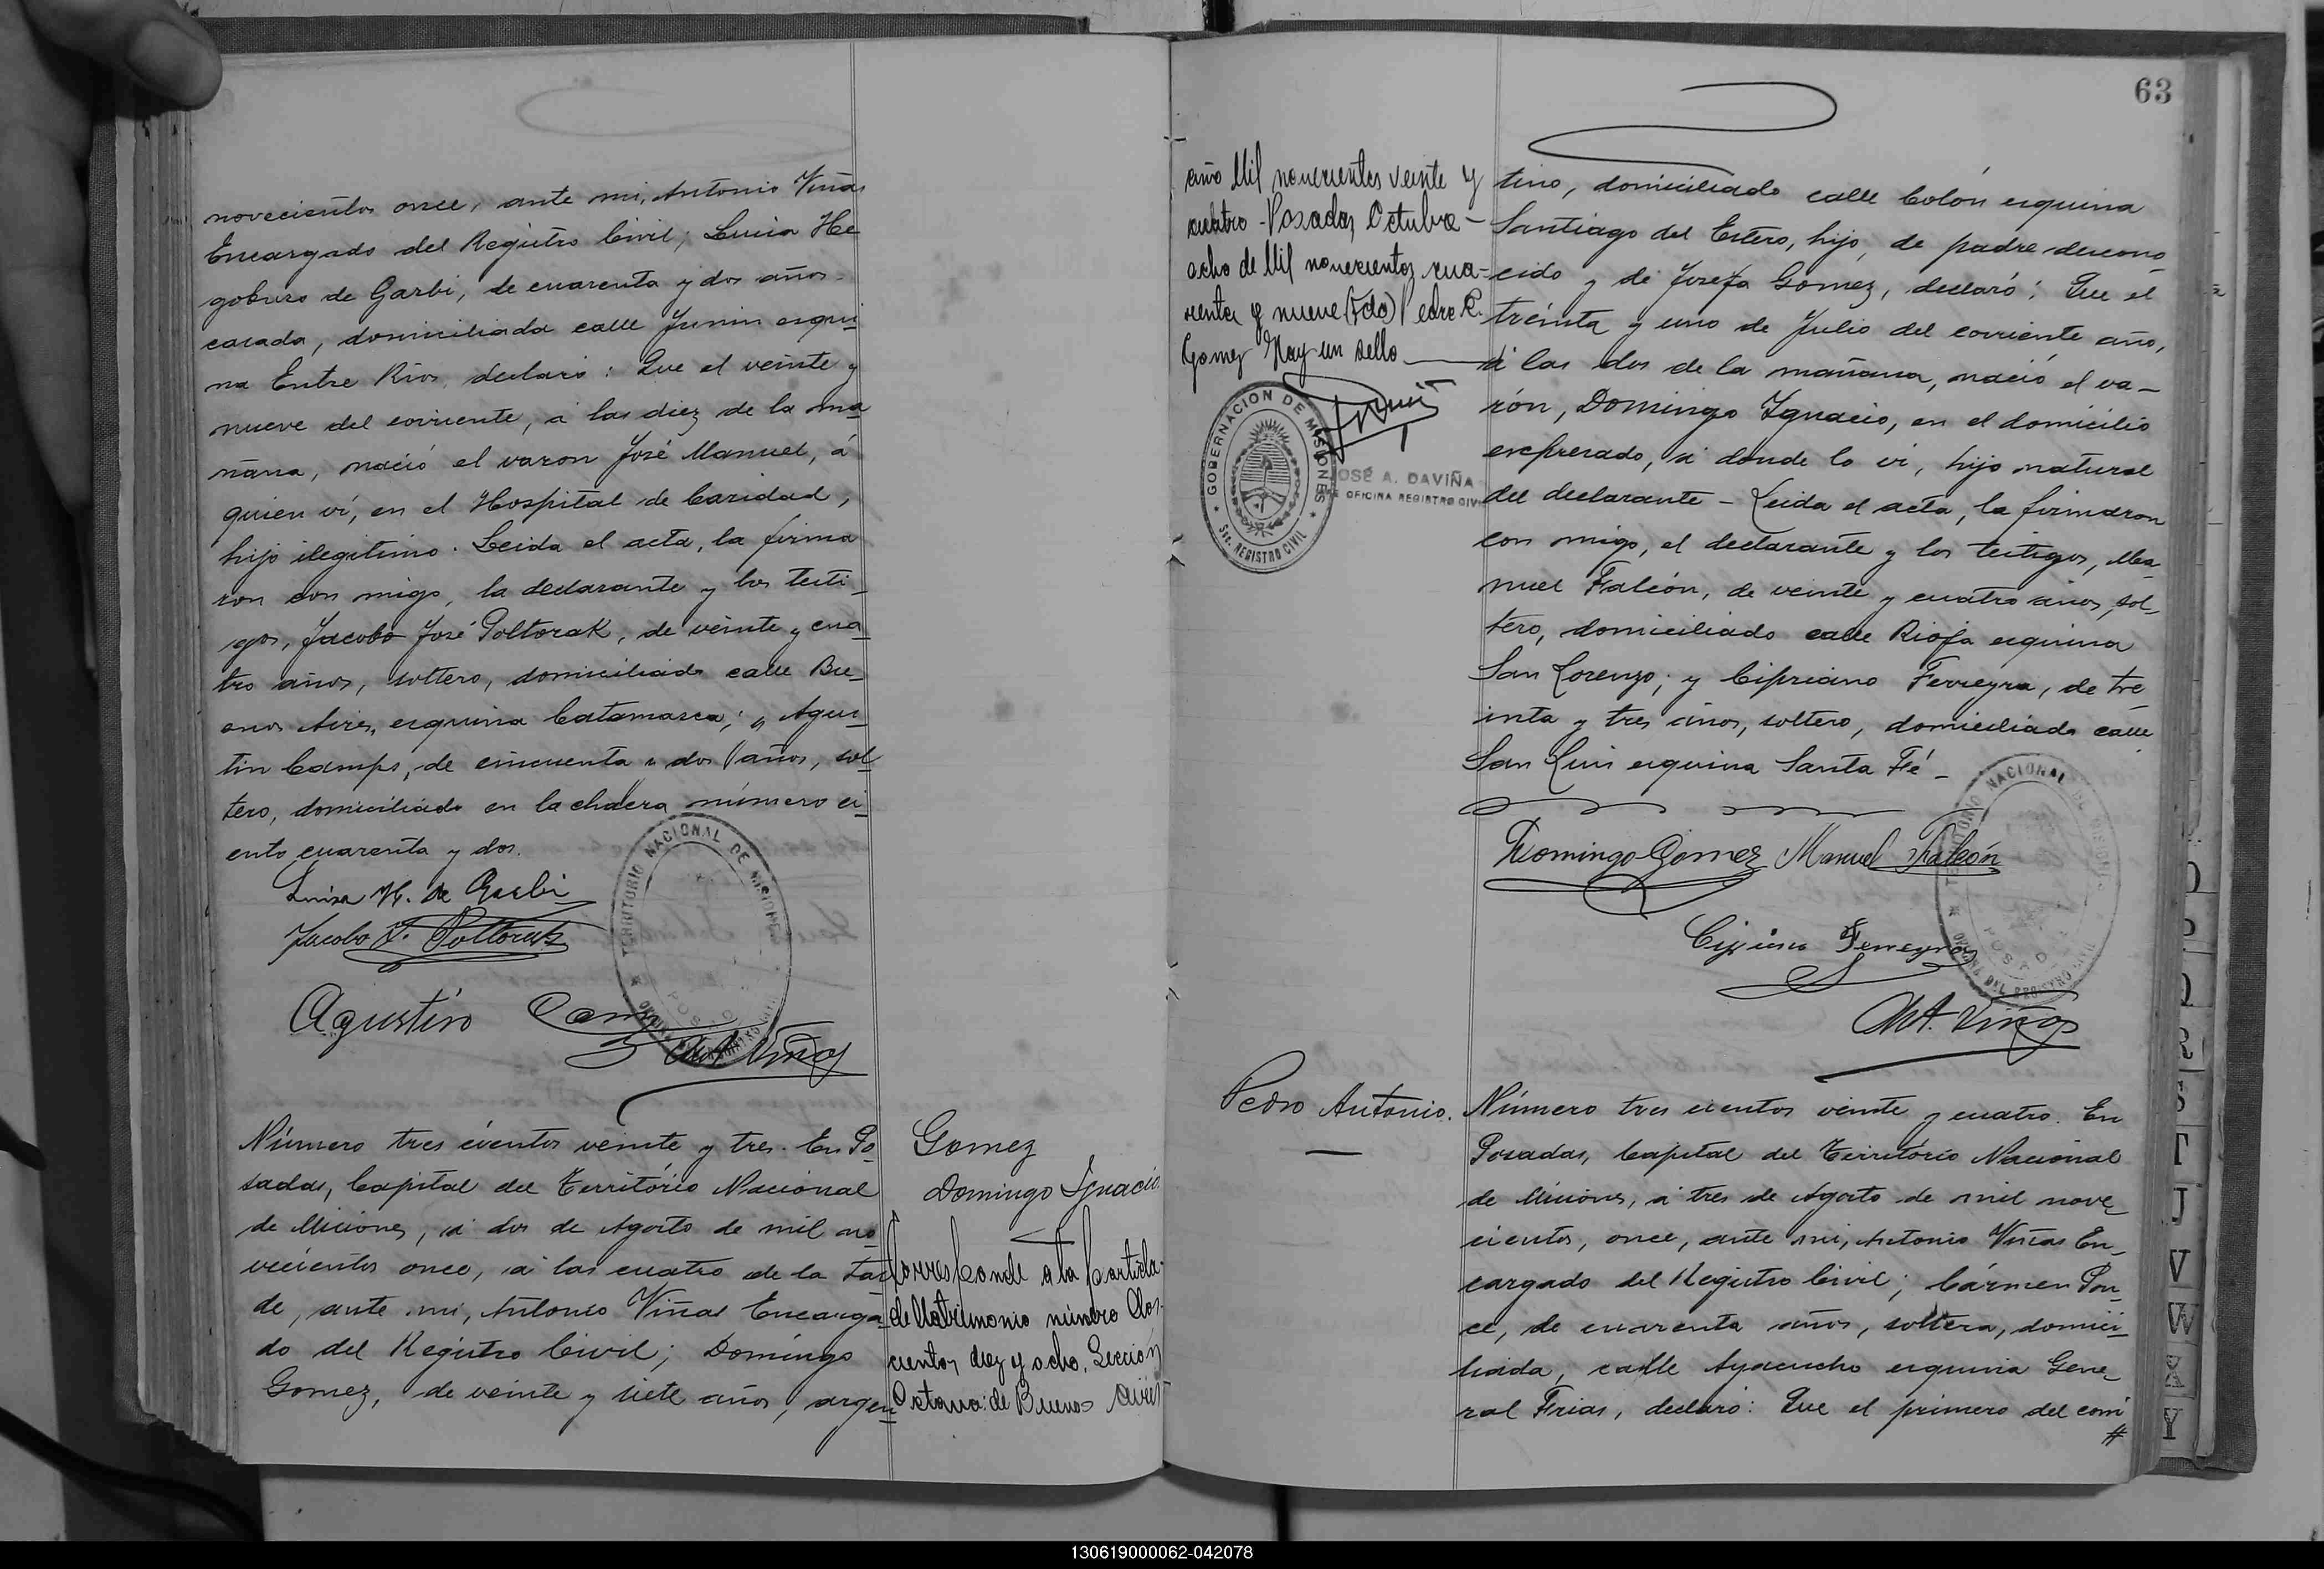 novecientos once, ante mi, Antonio Viñas
Encargado del Registro Civil; Luisa He
goburo de Garbi, de cuarenta y dos años
casada, domiciliada calle Junin esqui
na Entre Rios, declaró: Que el veinte y
nueve del corriente, á las diez de la ma
ñana, nació el varon José Manuel, á
quien ví, en el Hospital de Caridad,
hijo ilegitimo. Leida el acta, la firma
ron con migo, la declarante y los testi_
gos, Jacobo José Poltorak, de veinte y cua
tro años, soltero, domiciliado calle Bue_
enos Aires, esquina Catamarca; y Agus_
tin Camps, de cincuenta y dos años, sol
tero, domiciliado en la chacra número ci_
ento cuarenta y dos.
Luisa H. de Garbi
Jacobo J. Poltorak
Agustín Camps
TERRITORIO NACIONAL DE MISIONES
OFICINA DEL REGISTRO CIVIL
POSADAS
Ant. Viñas
Número tres cientos veinte y tres. En Po_
sadas, Capital del Território Nacional
de Misiones, á dos de Agosto de mil no_
vecientos once, á las cuatro de la tar
de, ante mi, Antonio Viñas Encarga_
do del Registro Civil; Domíngo
Gomez, de veinte y siete años, argen_
Gomez
Domingo Ignacio
Corresponde a la partida
de Matrimonio número dos
cientos diez y ocho, Sección
Octava: de Buenos Aires
63
año Mil novecientos veinte y
cuatro - Posadas, Octubre -
ocho de Mil novecientos cua-
renta y nueve (Fdo) Pedro R.
Gomez Hay un sello
GOBERNACION DE MISIONES
Sec. REGISTRO CIVIL
JOSÉ A. DAVIÑA
OFICINA REGISTRO CIV
tino, domiciliado calle Colón esquina
Santiago del Estero, hijo, de padre descono_
cido y de Josefa Gomez, declaró: Que el
treinta y uno de Julio del corriente año,
á las dos de la mañana, nació el va_
rón, Domingo Ygnacio, en el domicilio
expresado, á donde lo ví, hijo natural
del declarante - Leida el acta, la firmaron
con migo, el declarante y los testigos, Ma_
nuel Falcón, de veinte y cuatro años, sol_
tero, domiciliado calle Rioja esquina
San Lorenzo; y Cipriano Ferreyra, de tre
inta y tres años, soltero, domiciliado calle
San Luis esquina Santa Fé -
Domingo Gomez Manuel Falcón
Cipriano Ferreyra
TERRITORIO NACIONAL DE MISIONES
OFICINA DEL REGISTRO CIVIL
POSADAS
Ant. Viñas
Pedro Antonio.
Número tres cientos veinte y cuatro. En
Posadas, Capital del Território Nacional
de Misiones, á tres de Agosto de mil nove_
cientos, once, ante mi, Antonio Viñas En_
cargado del Registro Civil; Cármen Pon_
ce, de cuarenta años, soltera, domici_
liada, calle Ayacucho esquina Gene_
ral Frias, declaró: Que el primero del corri
#
O
P
Q
R
S
T
J
V
W
X
Y
130619000062-042078